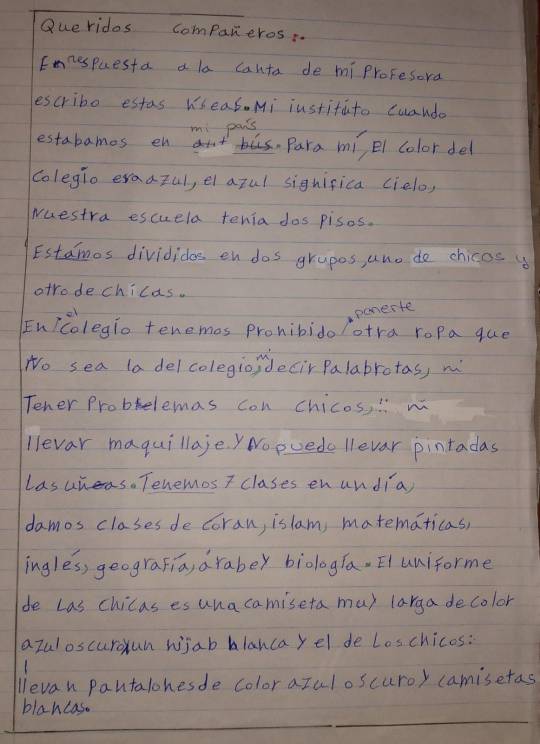 Queridos compañeros:.
En respuesta a la carta de mi Profesora
escribo estas ideas. Mi instituto cuando
estabamos en mi país. Para mí, El color del
colegio era azul, el azul significa cielo,
Nuestra escuela tenía dos pisos.
Estámos divididos en dos grupos, uno de chicos y
otro de chicas.
En el colegio tenemos prohibido ponerte otra ropa que
No sea la del colegio, ni decir Palabrotas, ni
Tener Problemas con chicos, ni
llevar maquillaje. Y No puedo llevar pintadas
Las uñas. Tenemos 7 clases en un día,
damos clases de Corán, islam, matemáticas,
inglés, geografía, árabe y biología. El uniforme
de Las chicas es una camiseta muy larga de color
azul oscuro y un hijab blanca y el de Los chicos:
llevan Pantalones de color azul oscuro y camisetas
blancas.